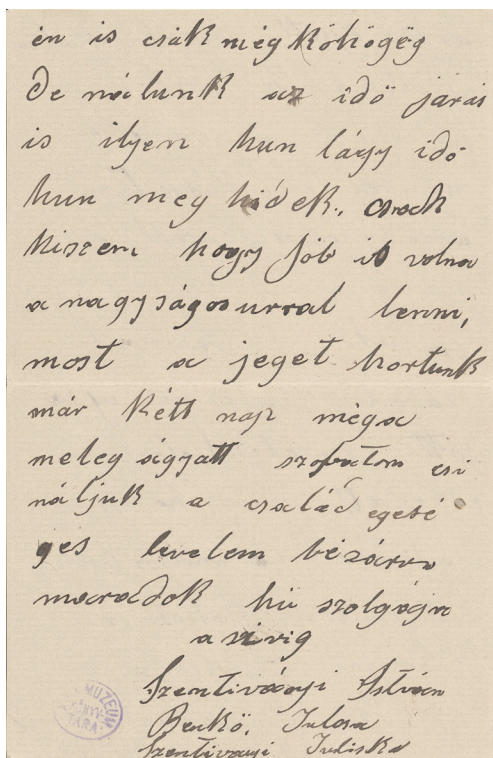 én is csák még köhögög
De nálunk az idő járás
is ilyen hun lágy idő
hun meg hidek., csack
hiszem hogy jób is volna
a nagyságos urral lenni,
most a jeget hortunk
már kétt nap méga
meleg ágyatt szobatom csi
náljuk a család egesé
ges levelem bézárva
maradok hü szolgája
a sirig
Szentiványi István
Benkő, Julosa
Szentivanyi Juliska
MUZEUM
KÖNYV
TÁRA